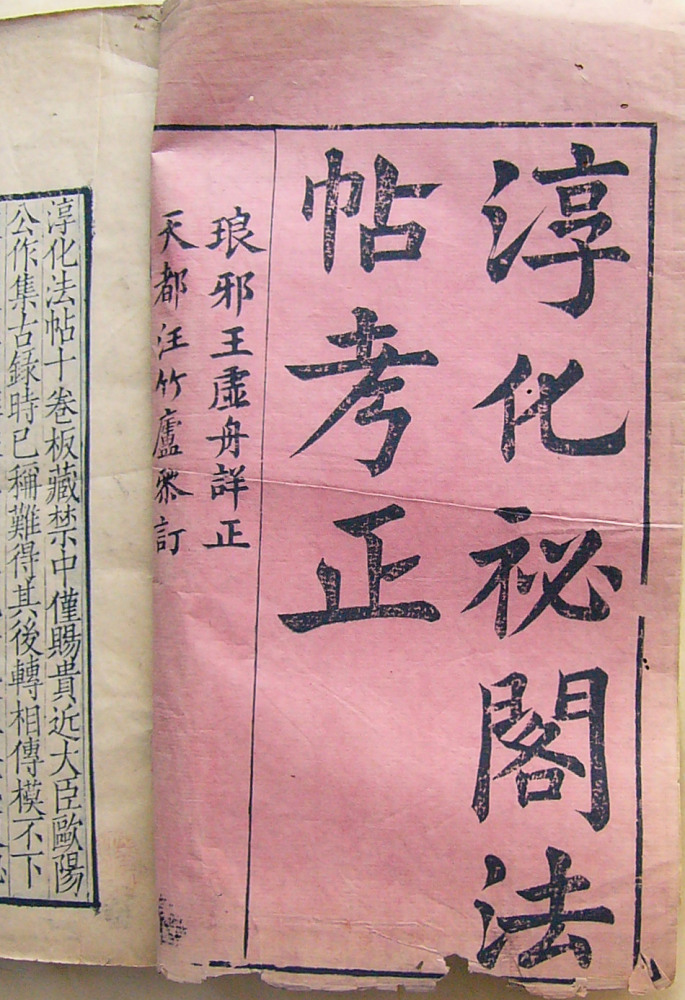 淳化祕閣法
帖考正
琅邪王虛舟詳正
天都汪竹廬叅訂
淳化法帖十卷板藏禁中僅賜貴近大臣歐陽
公作集古錄時已稱難得其後轉相傳模不下